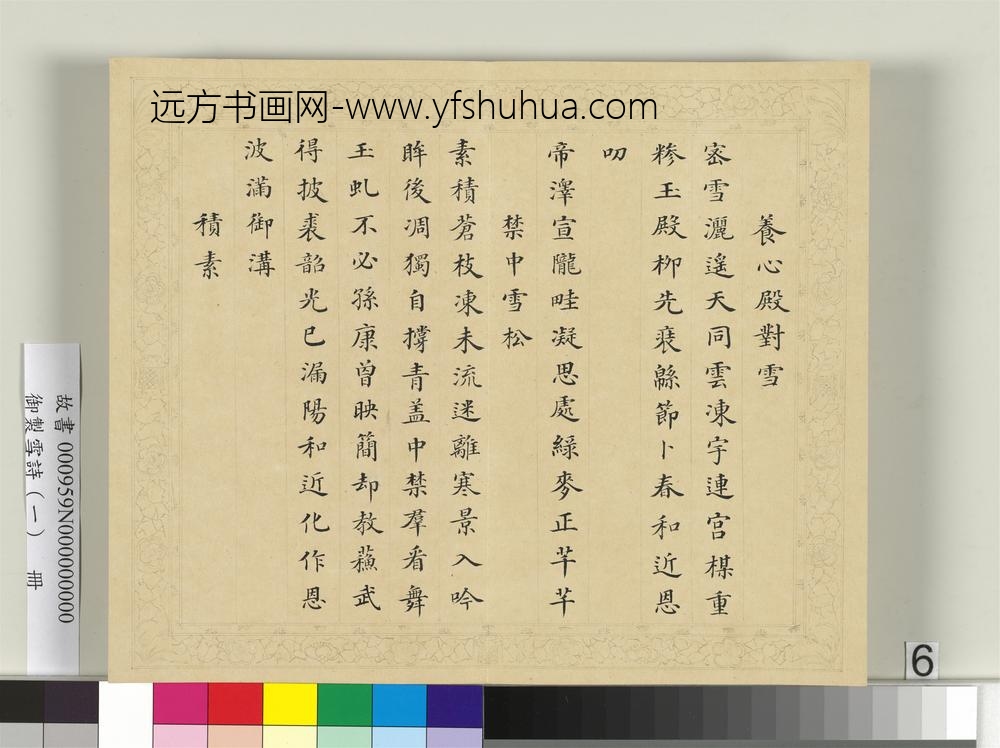 远方书画网-www.yfshuhua.com
養心殿對雪
密雪灑遙天同雲凍宇連宮楳重
糝玉殿柳先裴緜節卜春和近恩
叨
帝澤宣隴畦凝思處綠麥正芊芊
禁中雪松
素積蒼枝凍未流迷離寒景入吟
眸後凋獨自撐青盖中禁羣看舞
玉虬不必孫康曾映簡却教蘓武
得披裘韶光已漏陽和近化作恩
波滿御溝
積素
故書 000959N000000000
御製雪詩（一） 冊
6